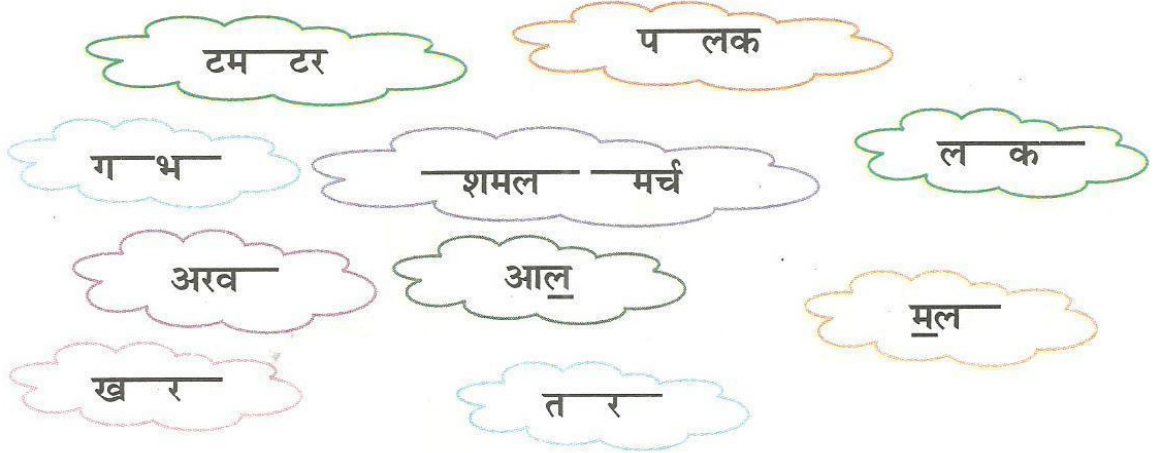 टम__टर
प__लक
ग__भ__
__शमल__ __मर्च
ल__क__
अरव__
आल_
म_ल__
ख__र__
त__र__